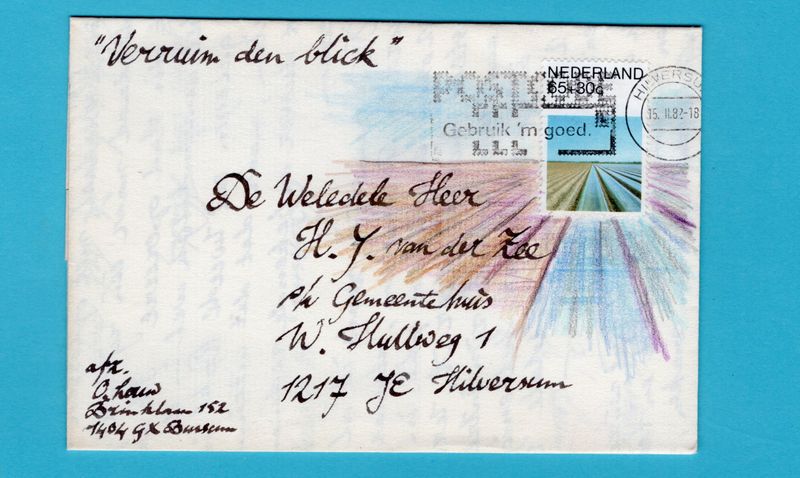 "Verruim den blick"
NEDERLAND
65+30c
POSTCODE
Gebruik 'm goed.
HILVERSUM
15.II.82-18
De Weledele Heer
H. J. van der Zee
p/a Gemeentehuis
W. Hullweg 1
1217 JE Hilversum
afz.
O. Louw
Brinklaan 152
1404 GX Bussum